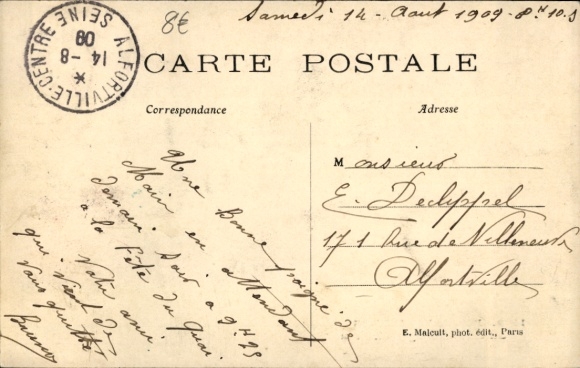 Samedi 14 - Aout 1909 - 8H 10. S
8€
ALFORTVILLE-CENTRE SEINE
14 - 8
09
CARTE POSTALE
Correspondance
Adresse
Une Bonne poignée de
Main en attendant
demain Soir a 9 H 25
a la Fête du Quai
Votre ami
qui vient de
vous quitter
Monsieur
E.
171 Rue de Villeneuve
Alfortville
E. Malcuit, phot. édit., Paris